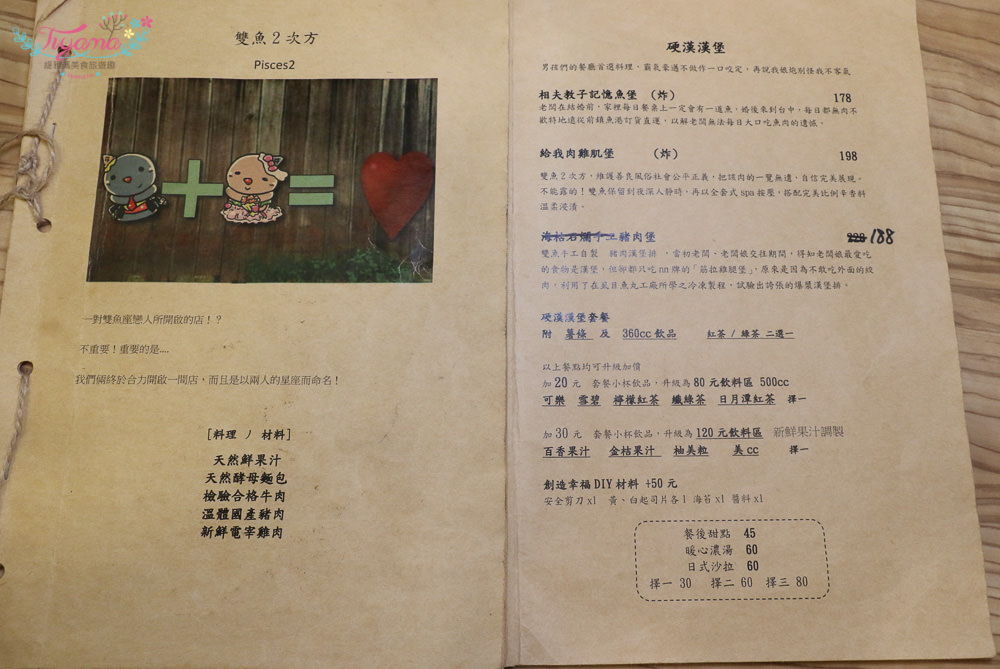 Tiyama
緹雅瑪美食旅遊趣
雙魚2次方
Pisces2
一對雙魚座戀人所開啟的店！？
不重要！重要的是....
我們倆終於合力開啟一間店，而且是以兩人的星座而命名！
[料理 / 材料]
天然鮮果汁
天然酵母麵包
檢驗合格牛肉
溫體國產豬肉
新鮮電宰雞肉
硬漢漢堡
男孩們的餐廳首選料理，霸氣豪邁不做作一口咬定，再說我娘炮別怪我不客氣
相夫教子記憶魚堡 （炸） 178
老闆在結婚前，家裡每日餐桌上一定會有一道魚，婚後來到台中，每日都無肉不
歡特地遠從前鎮魚港訂貨直運，以解老闆無法每日大口吃魚肉的遺憾。
給我肉雞肌堡 （炸） 198
雙魚2次方，維護善良風俗社會公平正義，把該肉的一覽無遺，自信完美展現。
不能露的！雙魚保留到夜深人靜時，再以全套式 spa 按壓，搭配完美比例辛香料
溫柔浸漬。
海枯石爛手工豬肉堡 228 188
雙魚手工自製 豬肉漢堡排 ，當初老闆、老闆娘交往期間，得知老闆娘最愛吃
的食物是漢堡，但卻都只吃 nn 牌的「筋拉雞腿堡」，原來是因為不敢吃外面的絞
肉，利用了在虱目魚丸工廠所學之冷凍製程，試驗出誇張的爆漿漢堡排。
硬漢漢堡套餐
附 薯條 及 360cc 飲品 紅茶 / 綠茶 二選一
以上餐點均可升級加價
加 20 元 套餐小杯飲品，升級為 80 元飲料區 500cc
可樂 雪碧 檸檬紅茶 纖綠茶 日月潭紅茶 擇一
加 30 元 套餐小杯飲品，升級為 120 元飲料區 新鮮果汁調製
百香果汁 金桔果汁 柚美粒 美 cc 擇一
創造幸福 DIY 材料 +50 元
安全剪刀 x1 黃、白起司片各 1 海苔 x1 醬料 x1
餐後甜點 45
暖心濃湯 60
日式沙拉 60
擇一 30 擇二 60 擇三 80